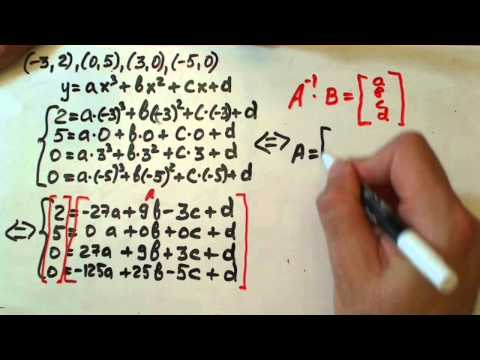 (-3, 2), (0, 5), (3, 0), (-5, 0)
y = ax³ + bx² + cx + d
2 = a·(-3)³ + b(-3)² + c·(-3) + d
5 = a·0 + b·0 + c·0 + d
0 = a·3³ + b·3² + c·3 + d
0 = a·(-5)³ + b(-5)² + c·(-5) + d
⇔
A
⇔ 2 = -27a + 9b - 3c + d
5 = 0a + 0b + 0c + d
0 = 27a + 9b + 3c + d
0 = -125a + 25b - 5c + d
A⁻¹· B = [a
b
c
d]
A = [